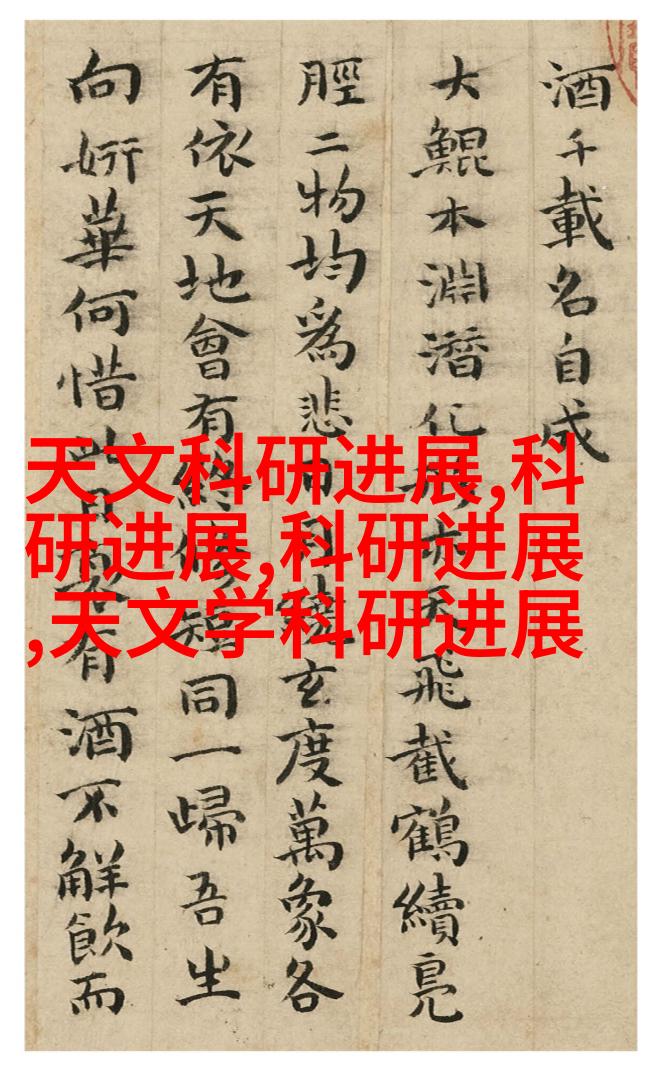 酒千載名自成
大鯤本淵潛化形亦天飛截鶴續鳧
脛二物均爲悲日玄度萬象各
有依天地會有終脩短同一歸吾生
向妍華何惜此日衰有酒不解飲而
天文科研进展,科
研进展,科研进展
,天文学科研进展